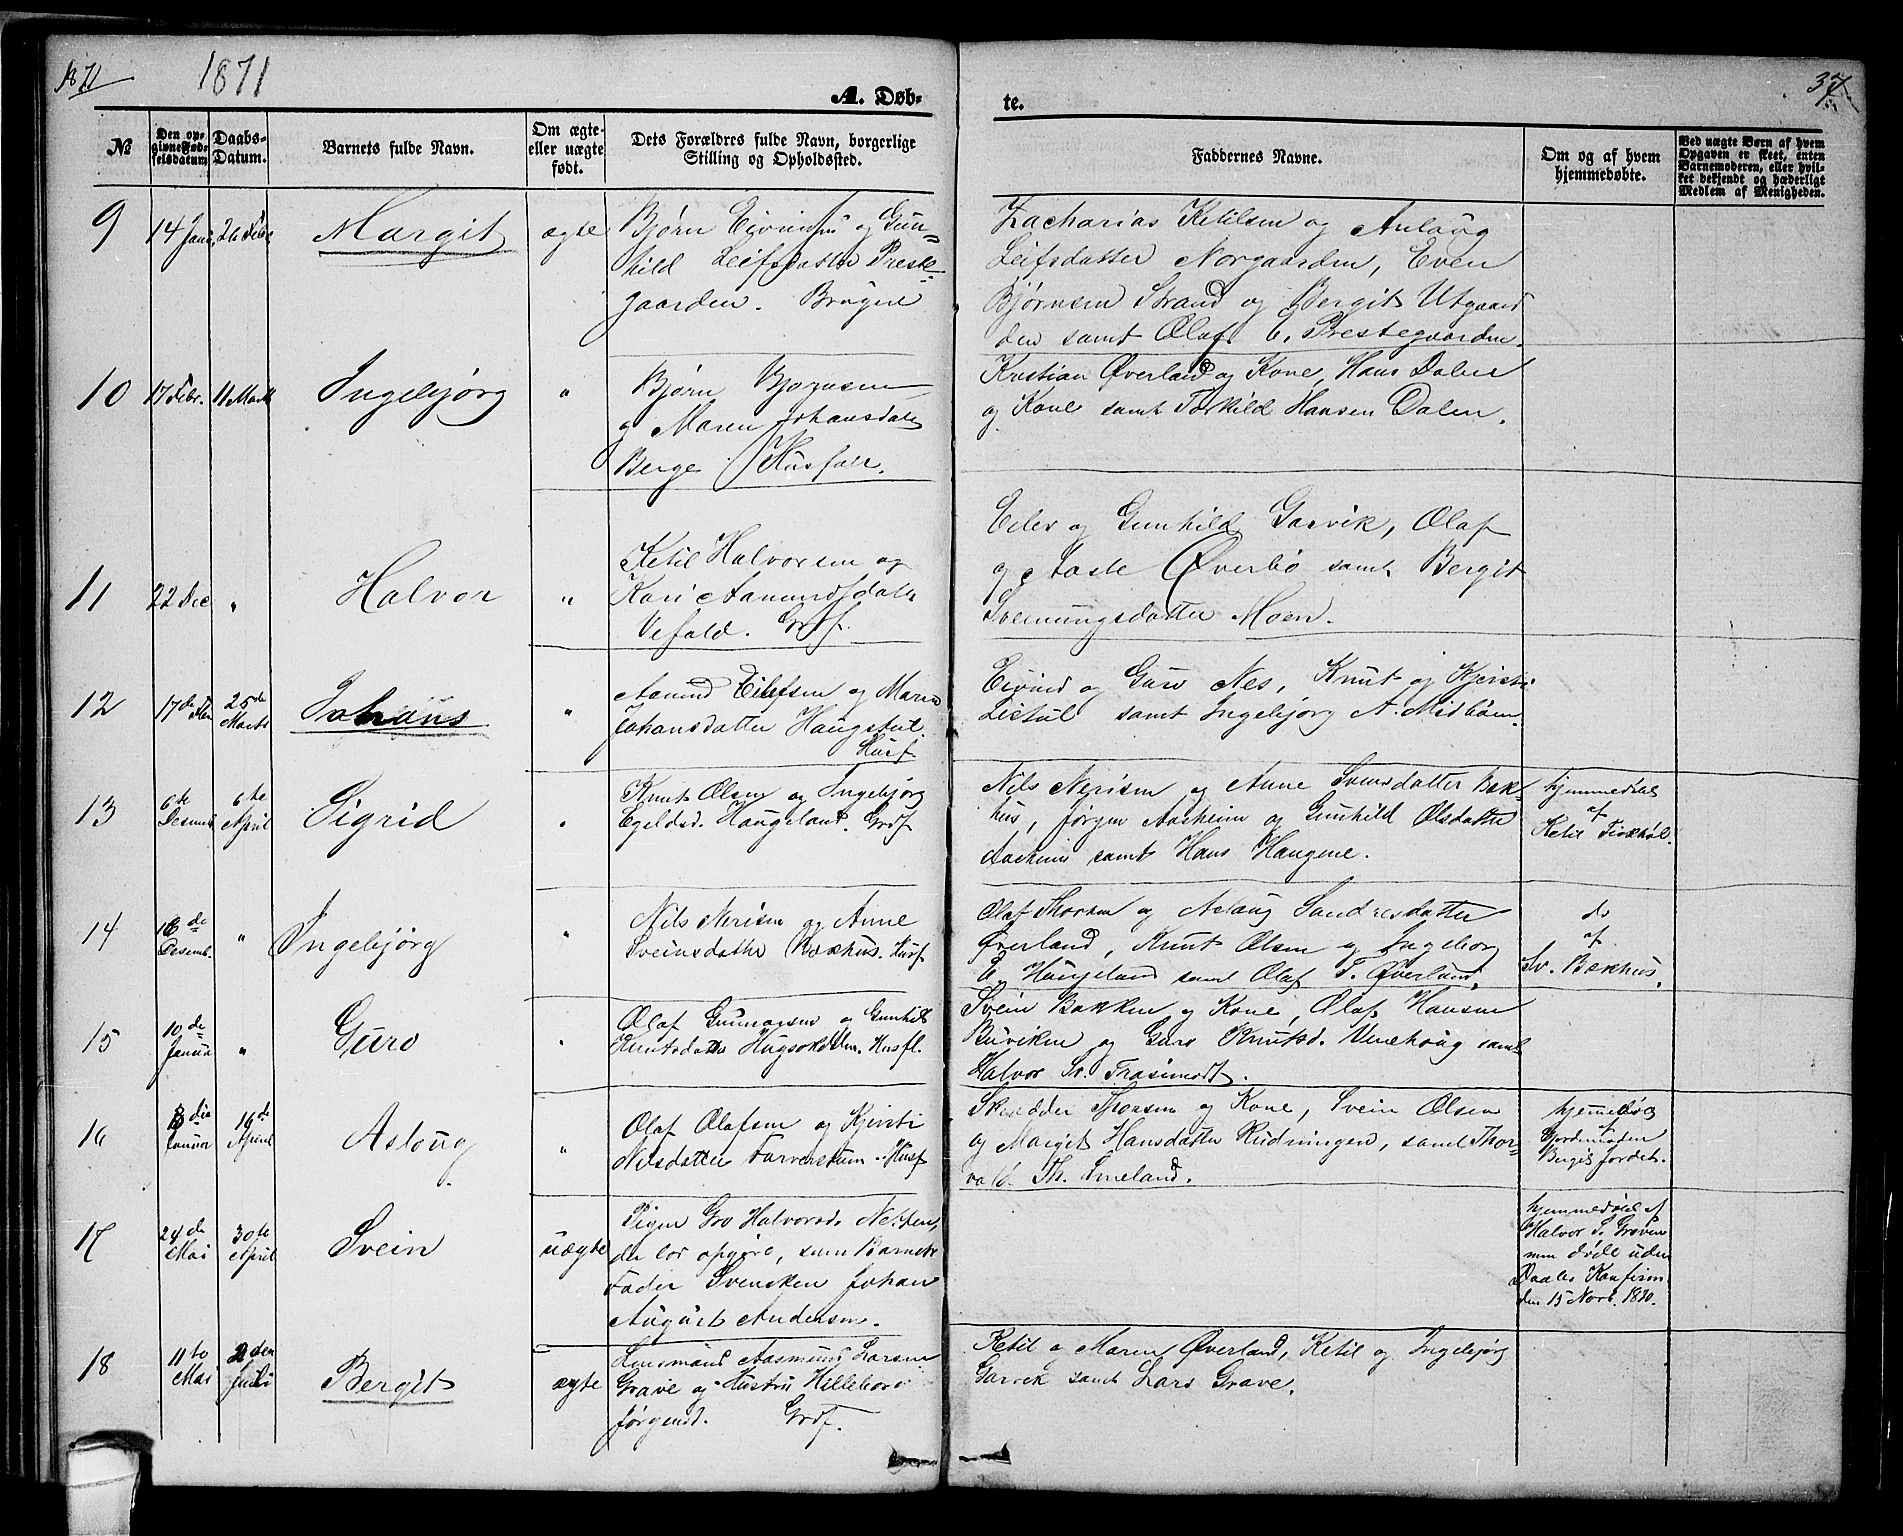 1871
1871
37
A. Døb-
te.
№
Den op-
givne Fød-
selsdatum
Daabs-
Datum.
Barnets fulde Navn.
Om ægte
eller uægte
født.
Dets Forældres fulde Navn, borgerlige
Stilling og Opholdssted.
Faddernes Navne.
Om og af hvem
hjemmedøbte.
Ved uægte Børn af hvem
Opgaven er skeet, enten
Barnemoderen, eller hvil-
ket bekjendt og hæderligt
Medlem af Menigheden.
9
14 Janu
26 Febr
Margit
ægte
Bjørn Eivindsen og Gun=
hild Leifsdatter Preste=
gaarden. Brugere
Zacharias Ketilsen og Anlaug
Leifsdatter Norgaarden, Even
Bjørnsen Strand og Bergit Utgaar
den samt Olaf E. Prestegaarden.
10
17 Febr.
11 Marts
Ingebjørg
"
Bjørn Bjørnsen
og Maren Johansdatr
Berge Husfolk.
Kristian Øverland og Kone, Hans Dalen
og Kone samt Torkild Hansen Dalen.
11
22 Dec
"
Halvor
"
Ketil Halvorsen og
Kari Aamundsdatr
Vefald. Grdf.
Eilev og Gunhild Garvik, Olaf
og Aaste Øverbö samt Bergit
Svenungsdatter Moen.
12
17de
25de
Marts
Johans
"
Aamund Eilefsen og Maren
Johansdatter Haugstul.
Husf
Eivind og Guro Nes, Knut og Kjersti
Listul samt Ingebjørg A. Midböen.
13
6te
Desemb
6te
April
Sigrid
"
Knut Olsen og Ingebjørg
Egeldsd. Haugeland. Grdf
Nils Nerisen og Anne Svensdatter Bak-
hus, Jørgen Aasheim og Gunhild Olsdatter
Aasheim samt Hans Haugene.
hjemmedöbt
af
Ketil
14
16de
Desemb.
"
Ingebjørg
"
Nils Nerisen og Anne
Sveinsdatter Bakhus. Husf
Olaf Thorsen og Aslaug Sandresdatter
Øverland, Knut Olsen og Ingeborg
E. Haugeland samt Olaf T. Øverland.
do
af
Sv. Bakhus.
15
10de
Januar
"
Guro
"
Olaf Gunnarsen og Gunhild
Knutsdatter Husfl.
Svein Bakken og Kone, Olaf Hansen
Buviken og Guro Knutsd. Vinehoug samt
Halvor Sv.
16
Januar
16de
April
Aslaug
"
Olaf Olafsen og Kjersti
Nilsdatter Husf
Skrædder Thorsen og Kone, Svein Olsen
og Margit Hansdatter Rudningen, samt Thor=
vald Th. Smeland.
Gjordemoderen
Bergit Jordet.
17
24de
Mai
30te
April
Svein
uægte
Pigen Gro Halvorsd.
der har opgivet, som Barnets
Fader Svensken Johan
August Andersen.
hjemmedöbt af
Halvor S. Groven
men döde uden
Daabs Konfirm.
den 15 Novb. 1870.
18
11te
Mai
Juli
Bergit
ægte
Lensmand Aasmund Larsen
Grave og Hustru Hilleborg
Jørgensd. Grdf.
Ketil og Maren Øverland, Ketil og Ingebjørg
Garvik samt Lars Grave.